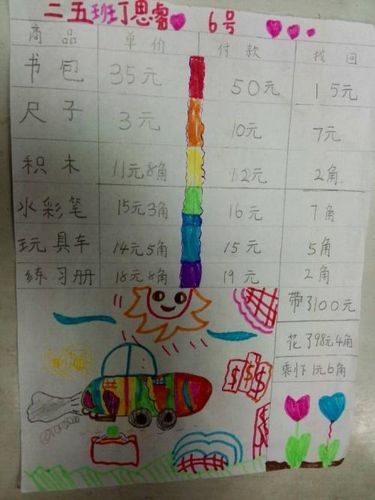 二五班丁思睿 6号
商品 单价 付款 找回
书包 35元 50元 15元
尺子 3元 10元 7元
积木 11元8角 12元 2角
水彩笔 15元3角 16元 7角
玩具车 14元5角 15元 5角
练习册 18元8角 19元 2角
带了100元
花了98元4角
剩下1元6角
$ $ $